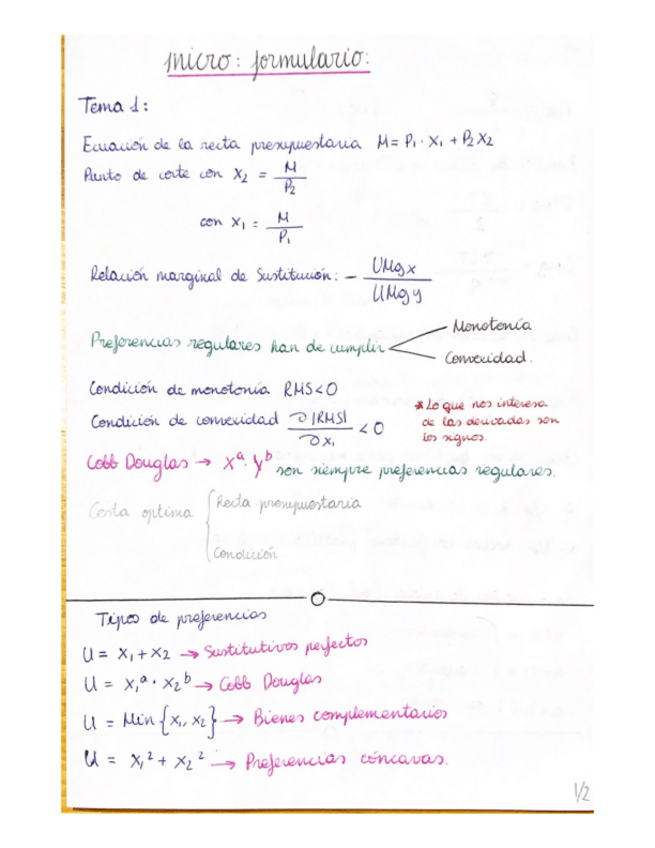 micro: formulario:
Tema 1:
Ecuación de la recta presupuestaria M = P₁ · X₁ + P₂ X₂
Punto de corte con X₂ = M / P₂
con X₁ = M / P₁
Relación marginal de Sustitución: - UMg x / UMg y
Preferencias regulares han de cumplir
Monotonía
Convexidad.
Condición de monotonía RMS < 0
Condición de convexidad ∂ |RMS| / ∂ X₁ < 0
* Lo que nos interesa
de las derivadas son
los signos.
Cobb Douglas → X^a · Y^b son siempre preferencias regulares.
Cesta óptima { Recta presupuestaria
Condición
Tipos de preferencias
U = X₁ + X₂ → Sustitutivos perfectos
U = X₁^a · X₂^b → Cobb Douglas
U = Min {X₁, X₂} → Bienes complementarios
U = X₁² + X₂² → Preferencias cóncavas.
1/2